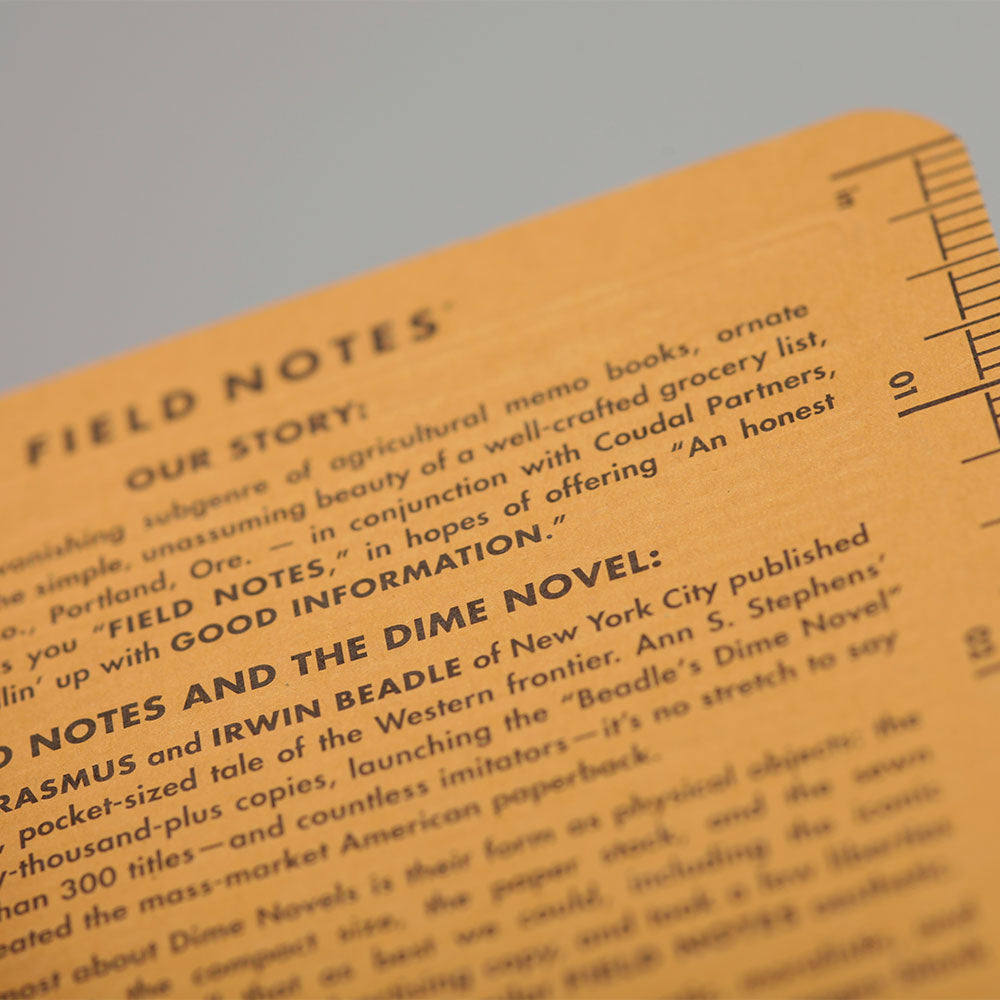 FIELD NOTES
OUR STORY:
vanishing subgenre of agricultural memo books, ornate
simple, unassuming beauty of a well-crafted grocery list,
Portland, Ore. — in conjunction with Coudal Partners,
you “FIELD NOTES,” in hopes of offering “An honest
up with GOOD INFORMATION.”
NOTES AND THE DIME NOVEL:
RASMUS and IRWIN BEADLE of New York City published
pocket-sized tale of the Western frontier. Ann S. Stephens’
-thousand-plus copies, launching the “Beadle’s Dime Novel”
han 300 titles—and countless imitators—it’s no stretch to say
eated the mass-market American paperback.
most about Dime Novels is their form as physical objects: the
the compact size, the paper stock, and the sewn
that as best we could, including the iconic
copy, and took a few liberties
FIELD NOTES
and
in
10